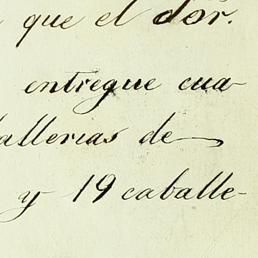 que el dor.
entregue cua-
allerias de
y 19 caballe-